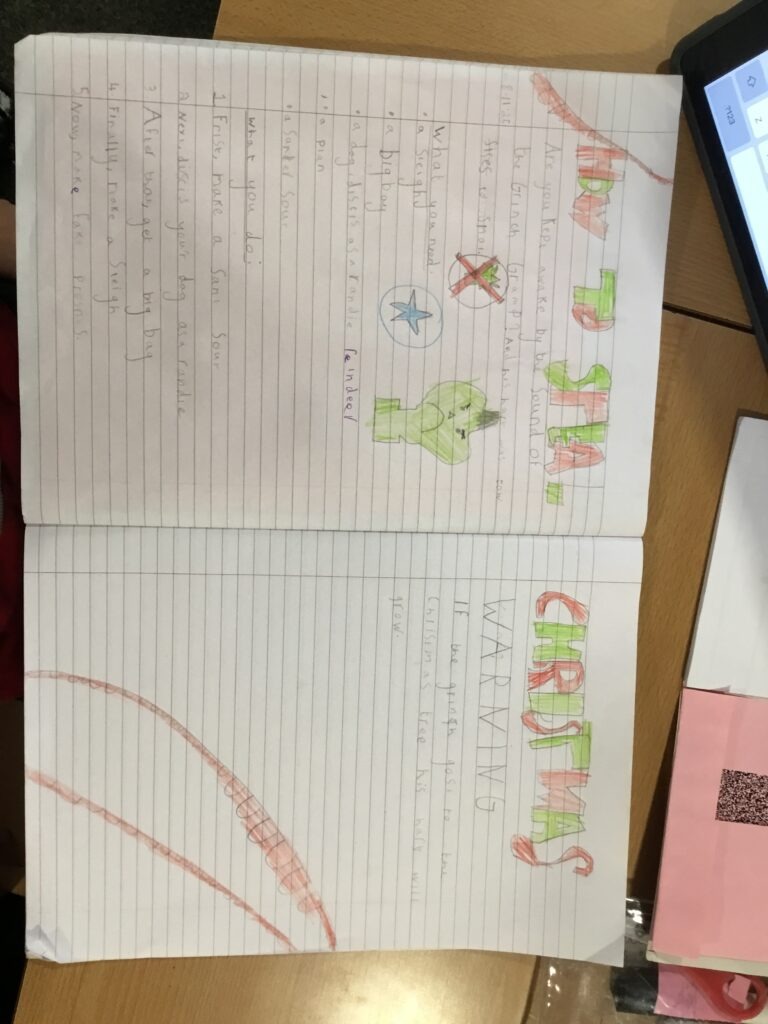 HOW TO STEAL
8.11.25
Are you kept awake by the sound of
the Grinch Grimp? And his
What you need:
• a sleigh
• a big bag
• a dog discis as randie reindeer
• a plan
• a Santer Sour
What you do:
1 Frist, make a Sant Sour
2 Next, discis your dog as a randie
3 After that, get a big bag
4 Finally, make a sleigh
5 Now, make fake
CHRISTMAS
WARNING
If the grinch gose to the
Chrisimas tree his hart will
grow.
?123
Z